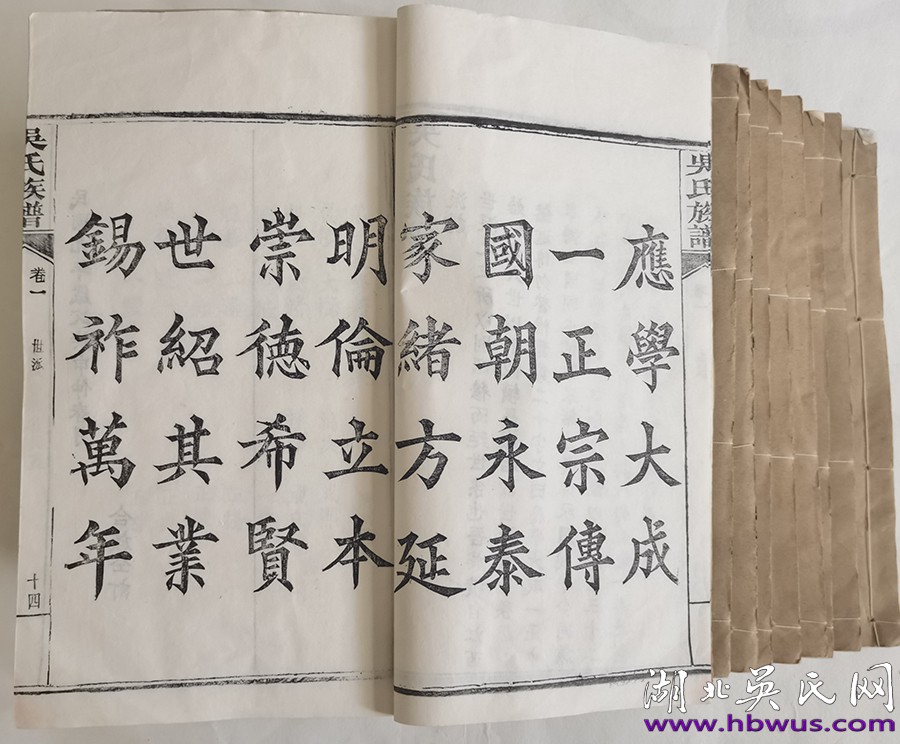 吳氏族譜
應學大成
一正宗傳
國朝永泰
家緒方延
明倫立本
崇德希賢
世紹其業
錫祚萬年
吳氏族譜
卷一
世派
十四
湖北吴氏网
www.hbwus.com